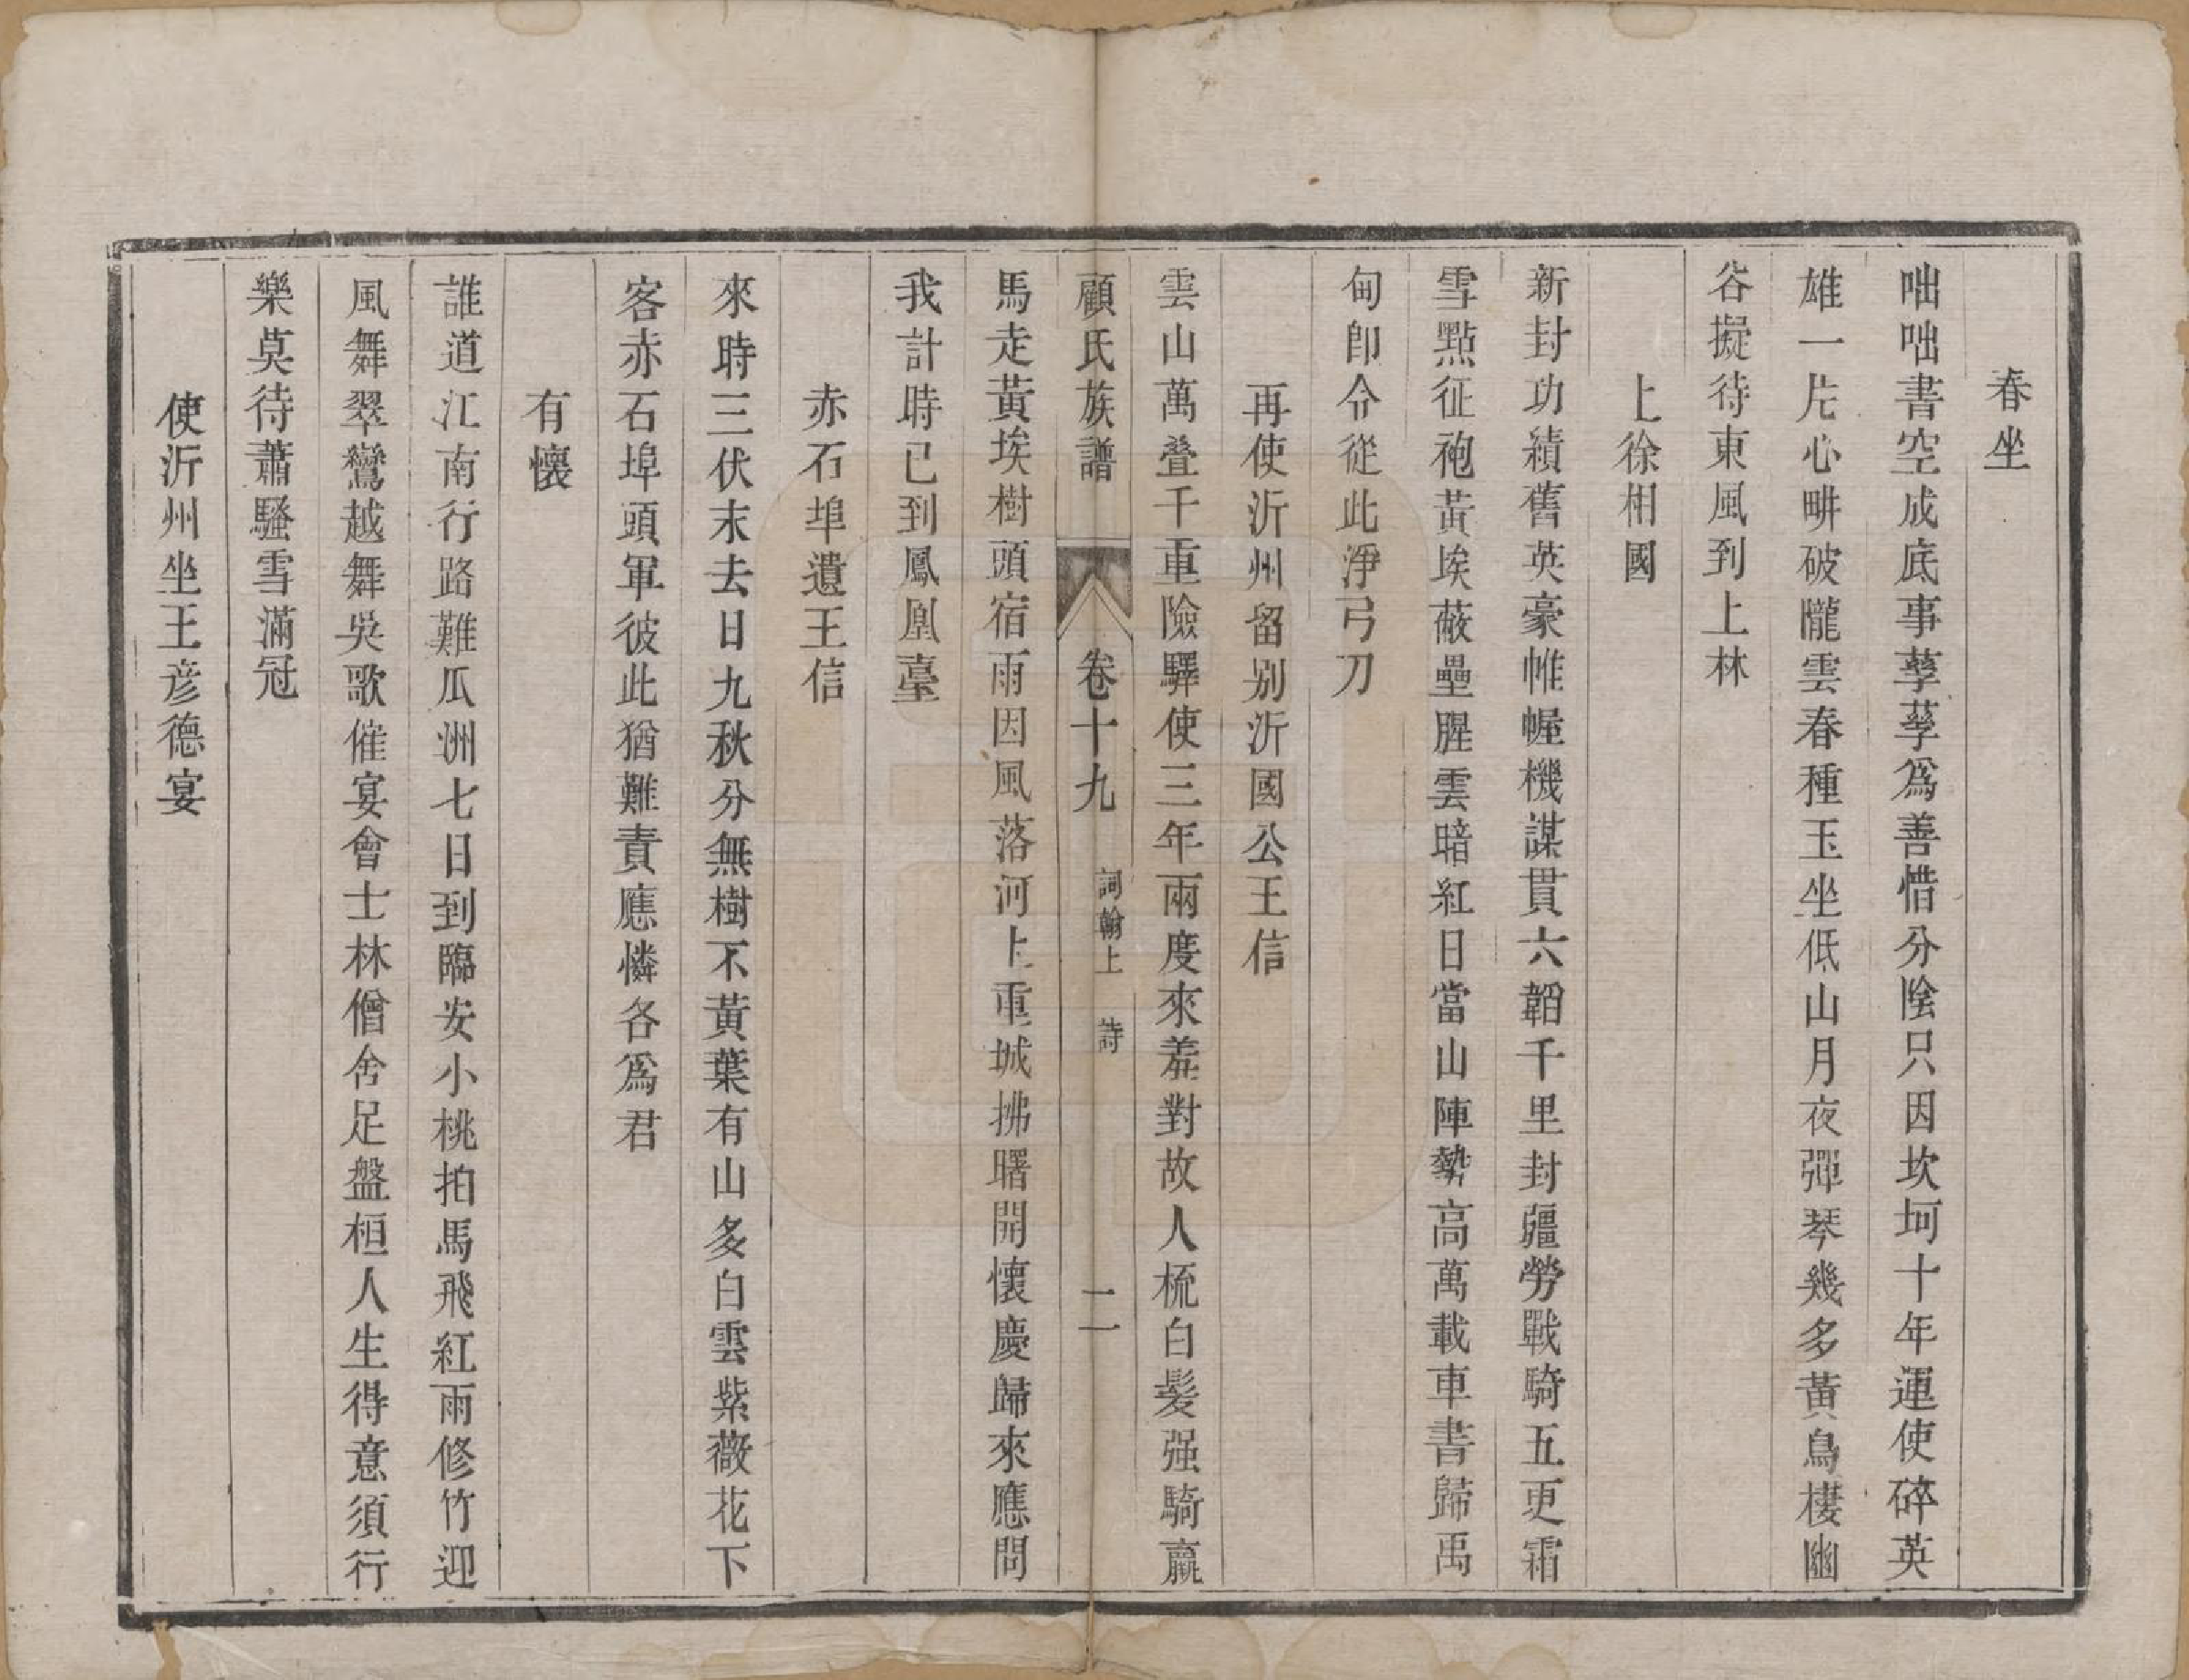 春坐
咄咄書空成底事孳孳爲善惜分陰只因坎坷十年運使碎英
雄一片心畊破隴雲春種玉坐低山月夜彈琴幾多黃鳥棲幽
谷擬待東風到上林
上徐相國
新封功績舊英豪帷幄機謀貫六韜千里封疆勞戰騎五更霜
雪點征袍黃埃蔽壘腥雲暗紅日當山陣勢高萬載車書歸禹
甸卽令從此淨弓刀
再使沂州留別沂國公王信
雲山萬叠千重險驛使三年兩度來羞對故人梳白髮强騎羸
顧氏族譜 卷十九 詞翰上 詩 二
馬走黃埃樹頭宿雨因風落河上重城拂曙開懷慶歸來應問
我計時已到鳳凰臺
赤石埠遺王信
來時三伏末去日九秋分無樹不黃葉有山多白雲紫薇花下
客赤石埠頭軍彼此猶難責應憐各爲君
有懷
誰道江南行路難瓜洲七日到臨安小桃拍馬飛紅雨修竹迎
風舞翠鸞越舞吳歌催宴會士林僧舍足盤桓人生得意須行
樂莫待蕭騷雪滿冠
使沂州坐王彦德宴